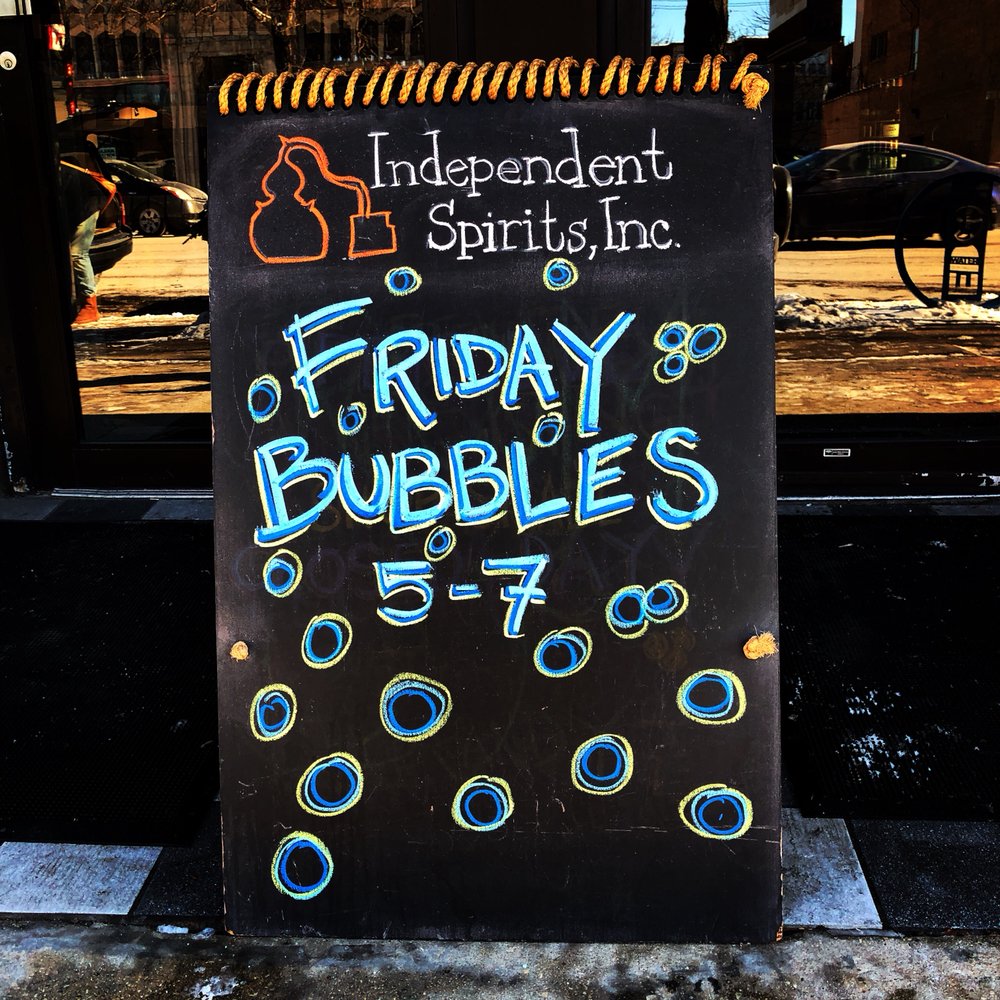 Independent
Spirits, Inc.
FRIDAY
BUBBLES
5-7
WATER